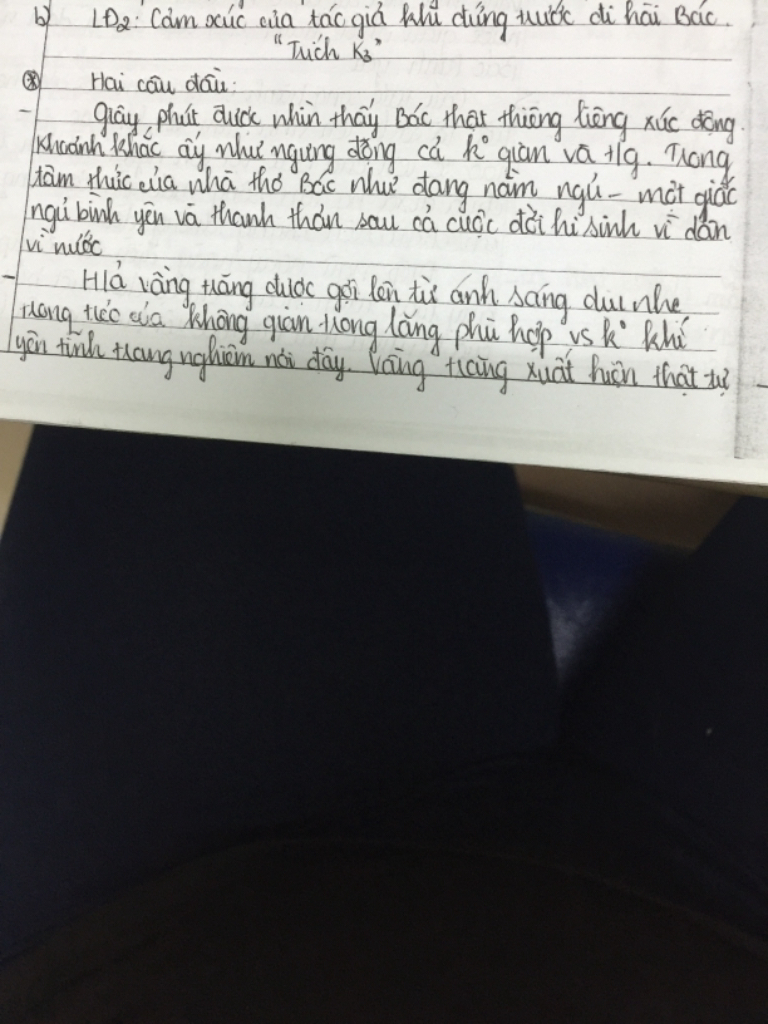 b) LĐ2: Cảm xúc của tác giả khi đứng trước di hài Bác.
"Trích K3"
* Hai câu đầu:
- Giây phút được nhìn thấy Bác thật thiêng liêng xúc động.
Khoảnh khắc ấy như ngưng đọng cả k° gian và t/g. Trong
tâm thức của nhà thơ Bác như đang nằm ngủ - một giấc
ngủ bình yên và thanh thản sau cả cuộc đời hi sinh vì dân
vì nước
- H/ả vầng trăng được gợi lên từ ánh sáng dịu nhẹ
trong trẻo của không gian trong lăng phù hợp vs k° khí
yên tĩnh trang nghiêm nơi đây. Vầng trăng xuất hiện thật tự